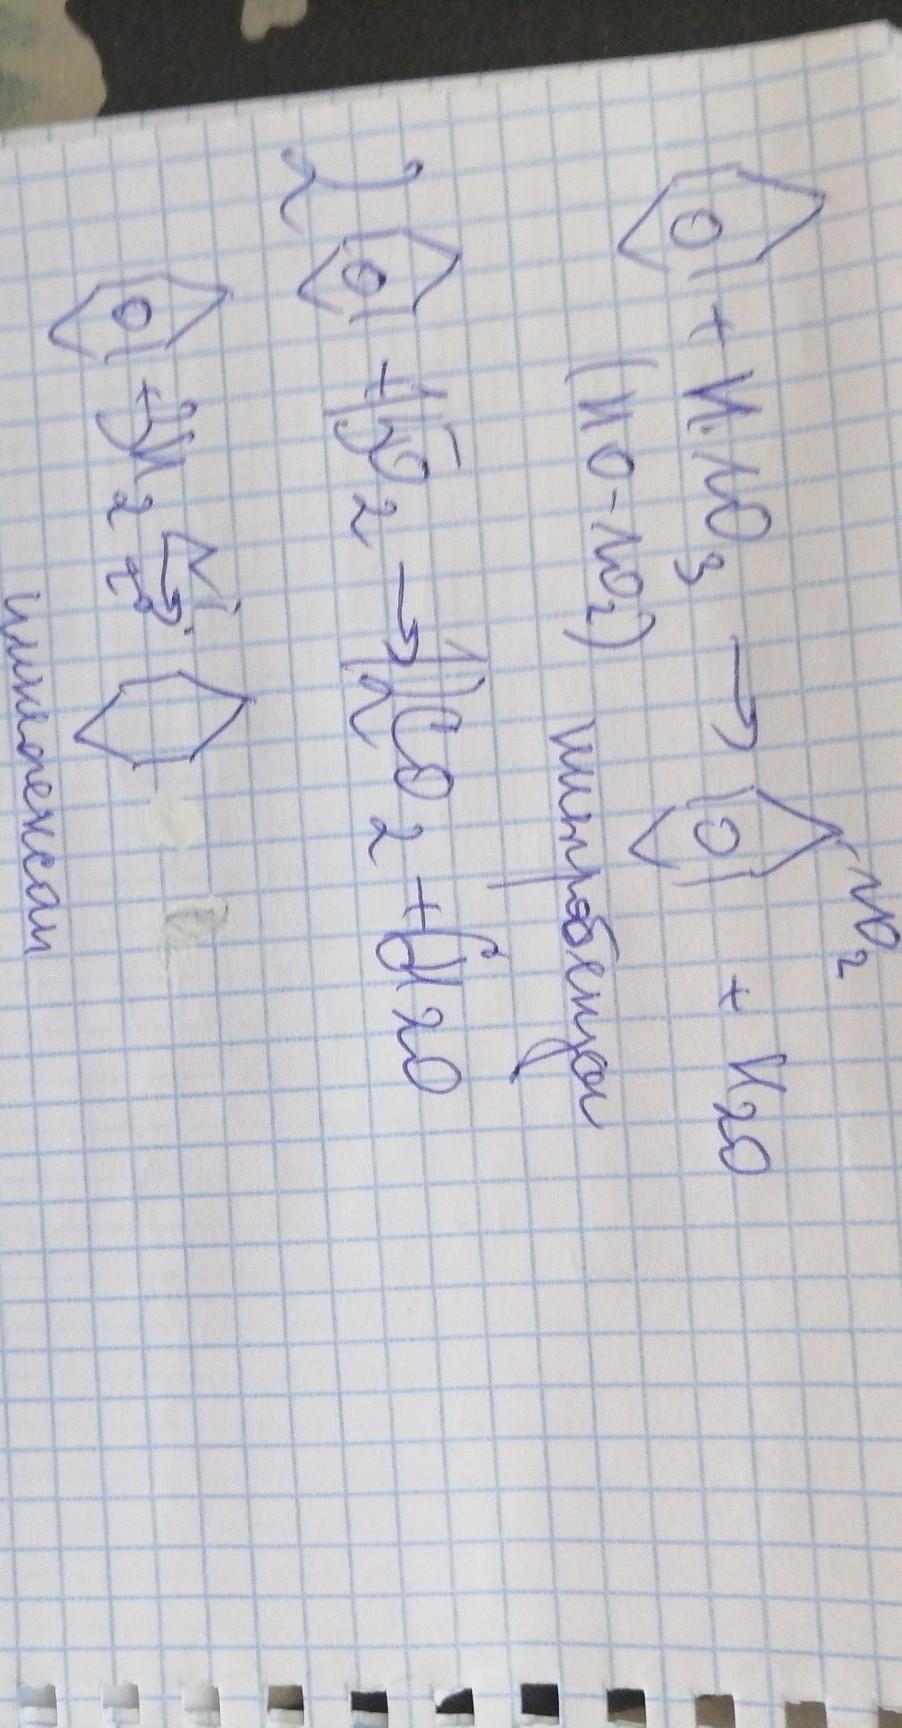 + HNO3 → NO2 + H2O
(HO-NO2) нитробензол
2 + 15O2 → 12CO2 + 6H2O
+ 3H2 Ni t° →
циклогексан